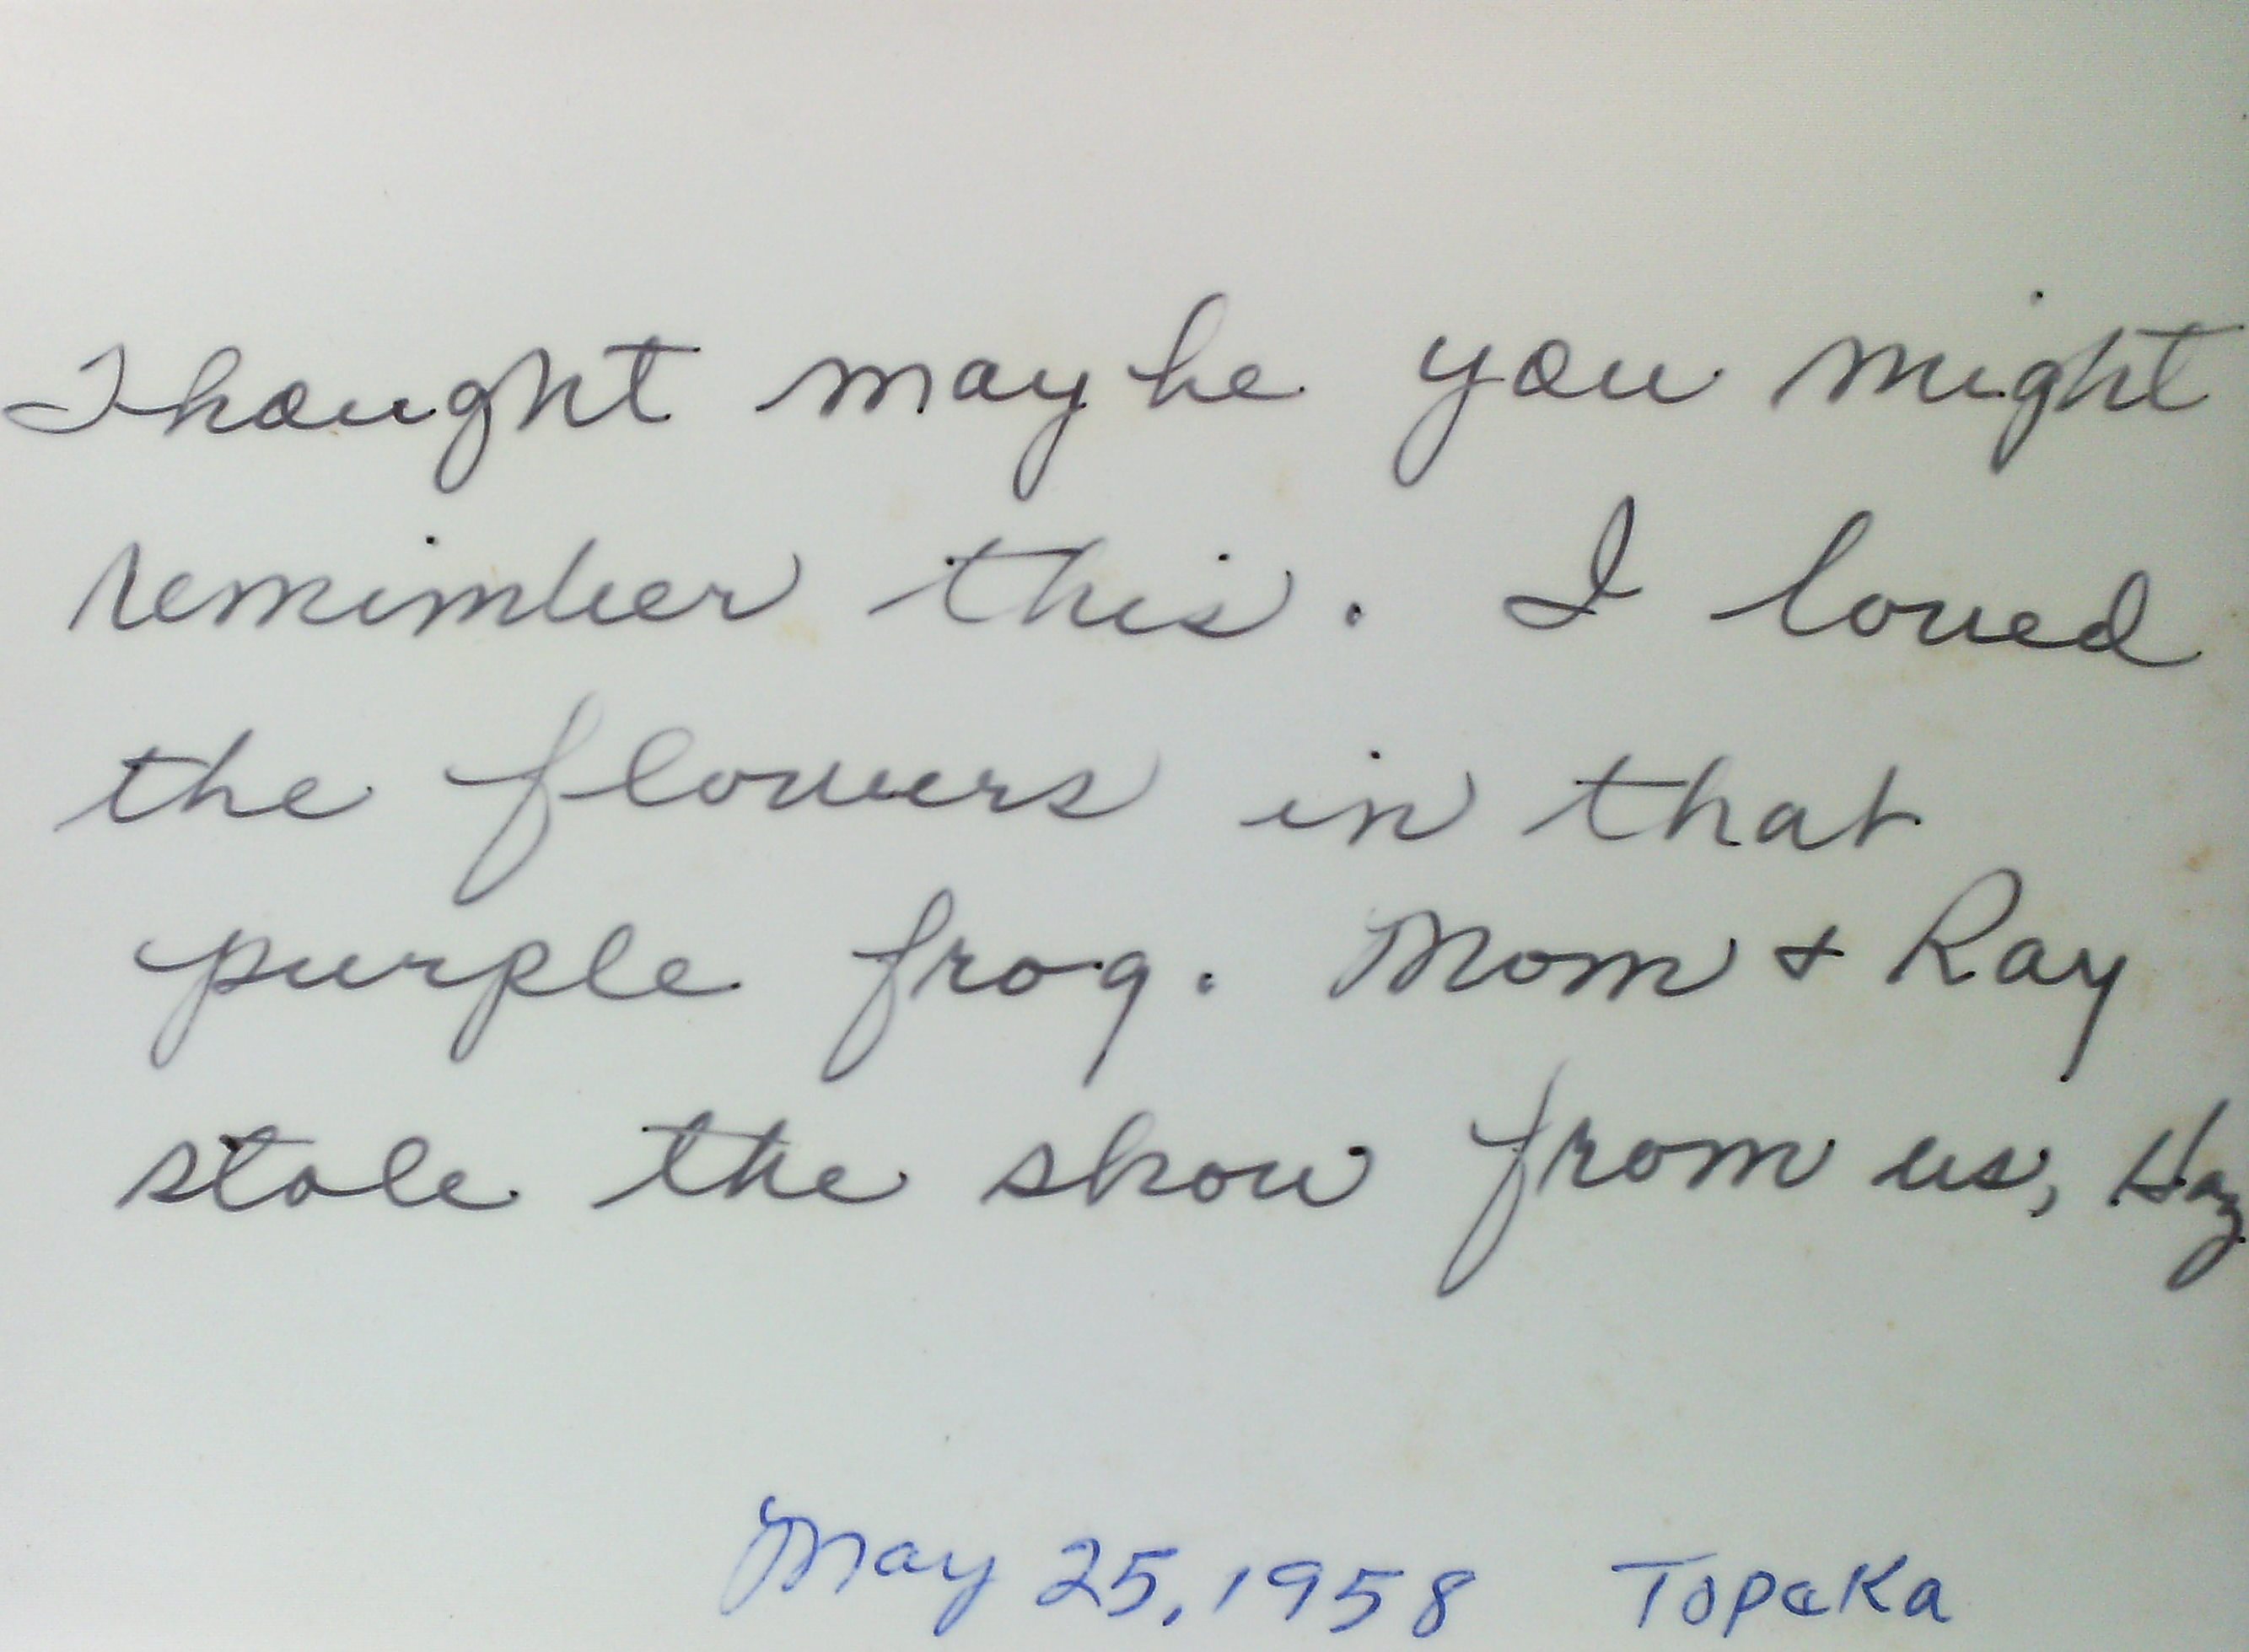 Thought maybe you might
remimber this. I loved
the flowers in that
purple frog. Mom + Ray
stole the show from us, Haz
May 25, 1958 Topeka